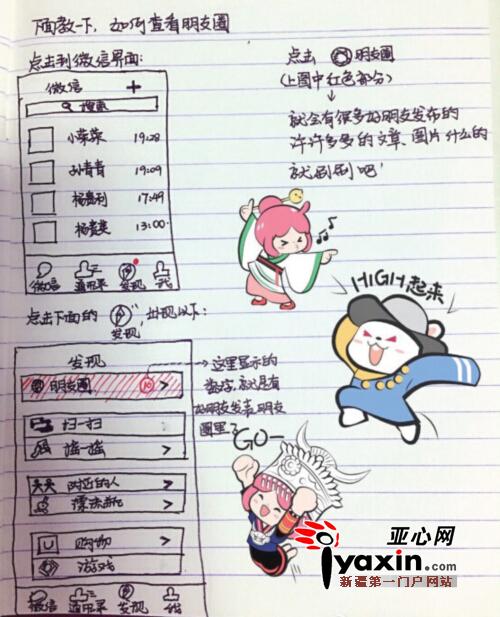 下面教一下，如何查看朋友圈
点击到微信界面：
微信 +
搜索
小菜菜 19:28
孙青青 19:09
杨嘉利 17:49
杨蓉英 13:00
微信 通讯录 发现 我
点击下面的 发现，出现以下：
发现
朋友圈 10 >
扫一扫
摇一摇 >
附近的人 >
漂流瓶 >
购物 >
游戏
微信 通讯录 发现 我
这里显示的
数字，就是有
好朋友发表朋友
圈里了
点击 朋友圈
(上图中红色部分)
就会有很多好朋友发布的
许许多多的文章、图片什么的
就刷刷吧！
HIGH起来
GO~
亚心网
iyaxin.com
新疆第一门户网站